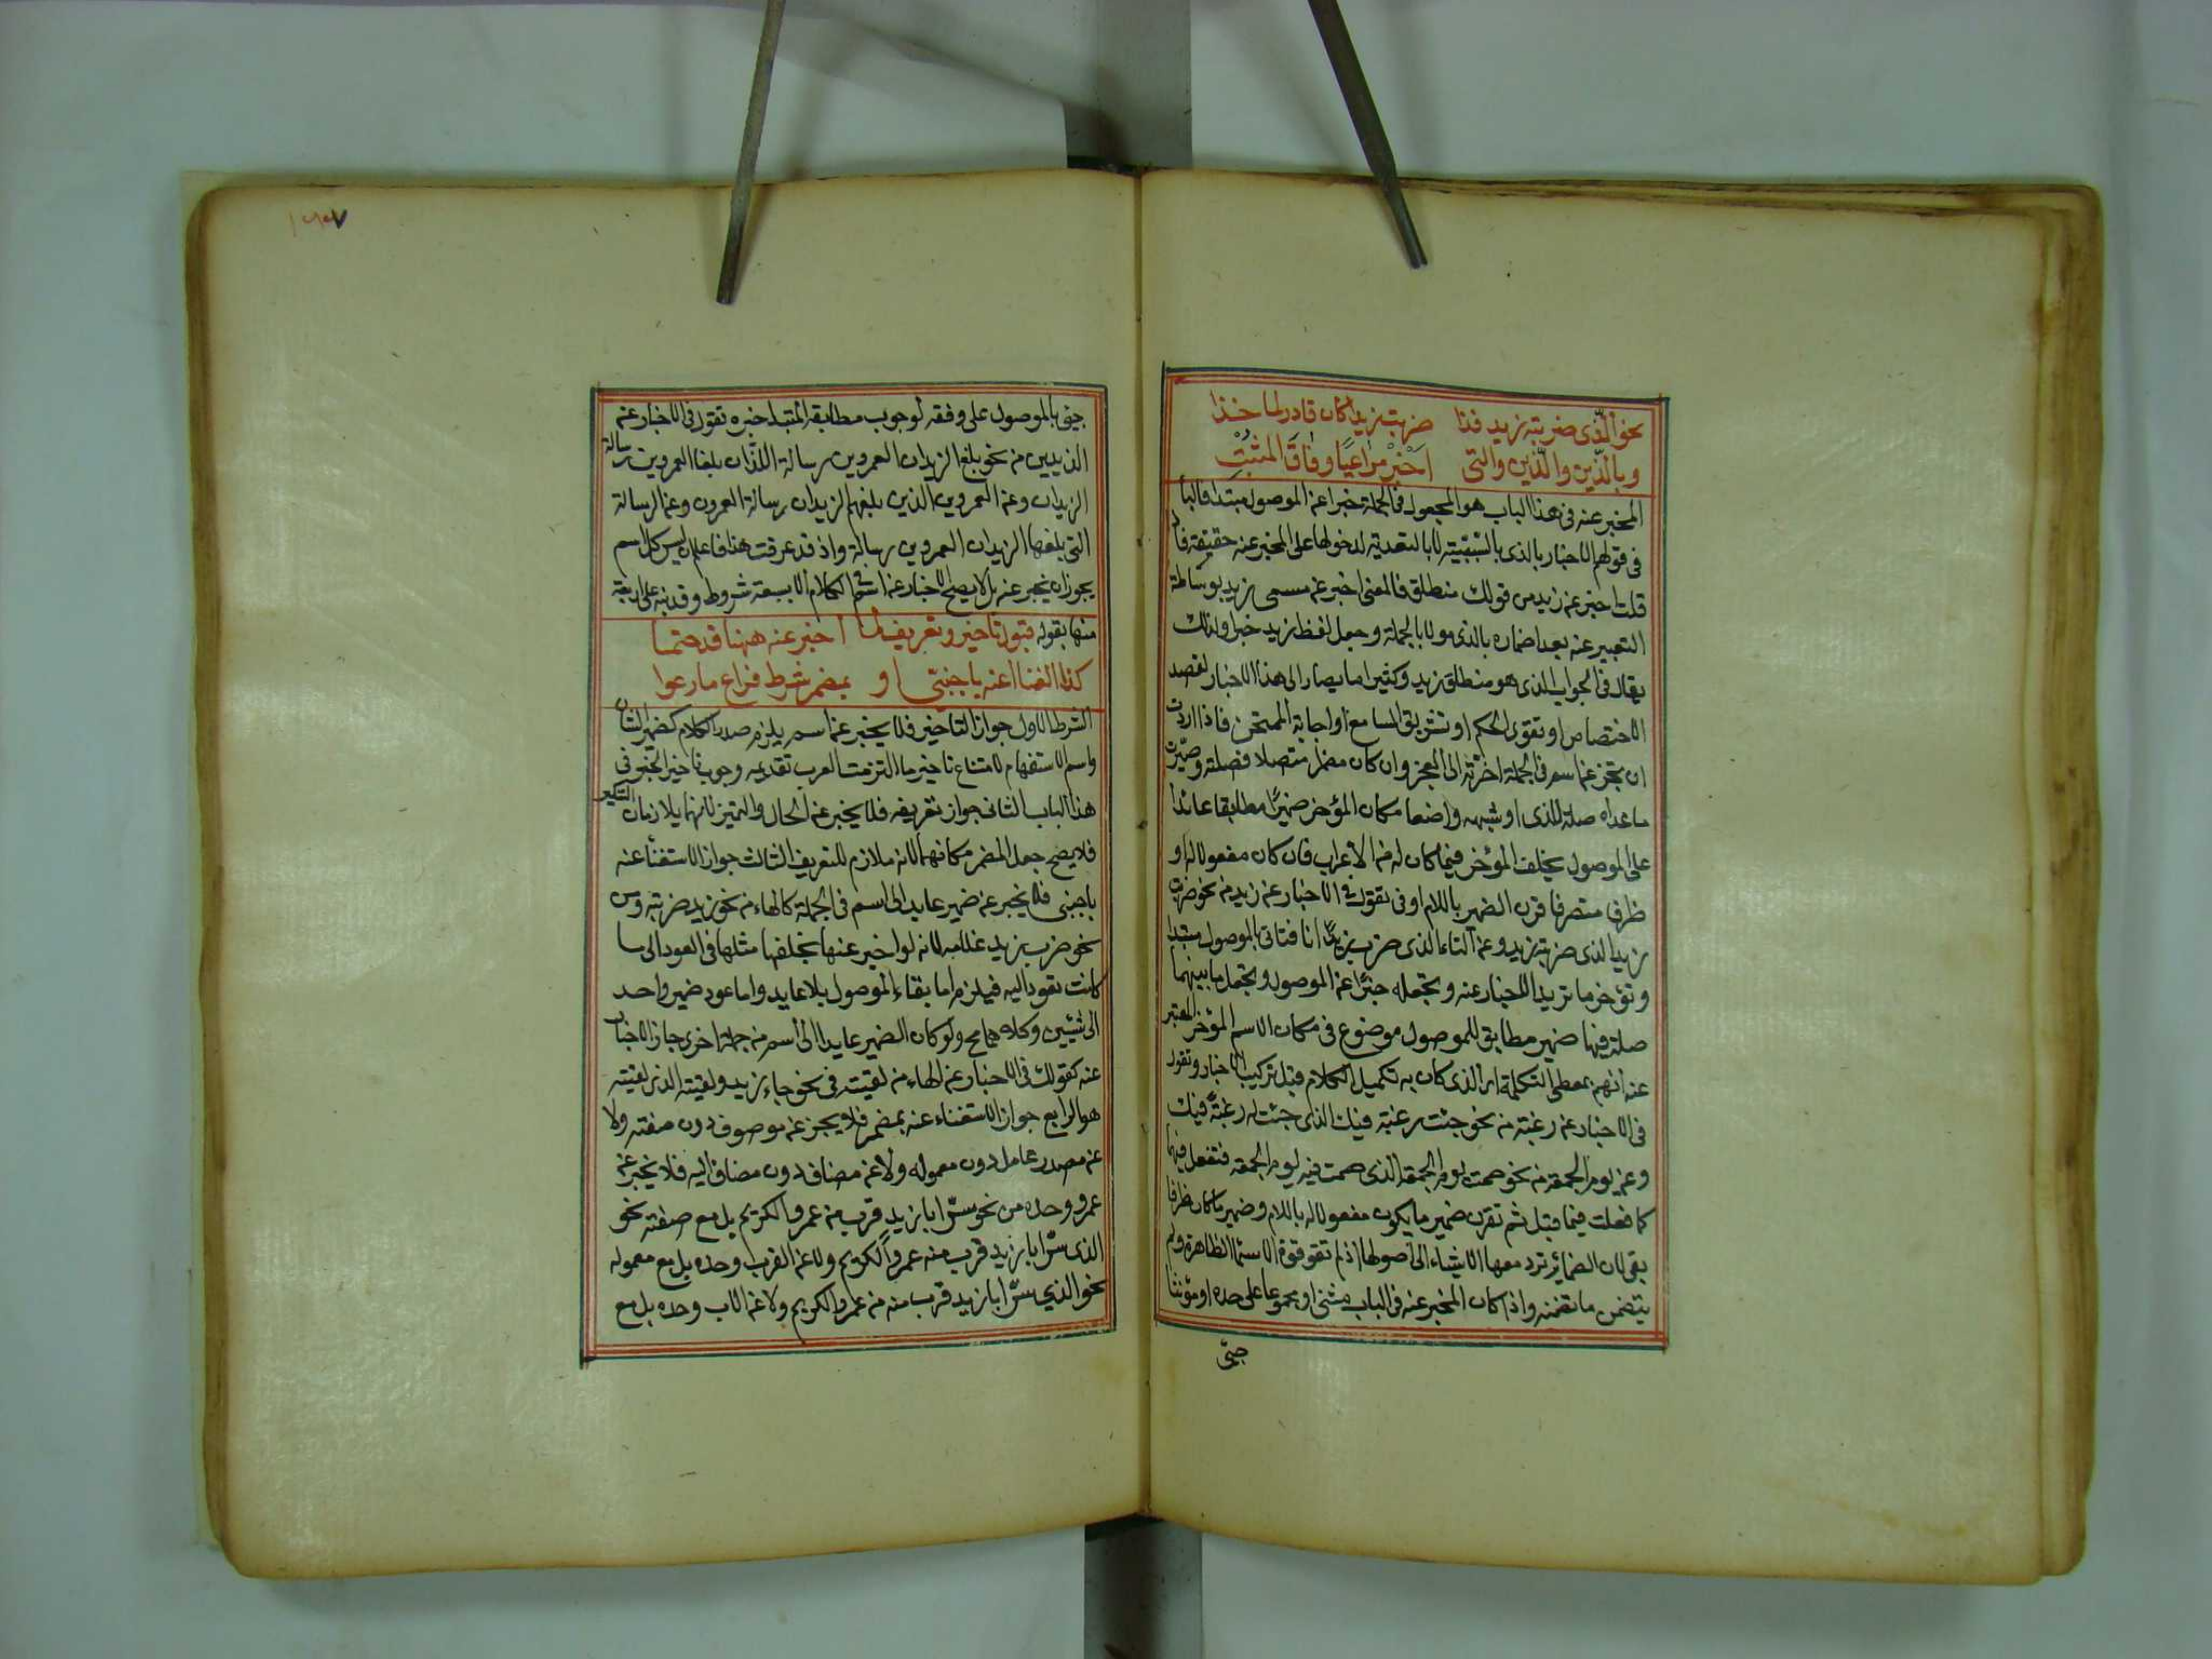 نحو الذي ضربته زيد فذا ضربت زيدا كان فادر الماخذا
وباللذين والذين والتي اخبر مراعيا وفاق المثبت
المخبر عنه في هذا الباب هو المجعول في الجملة خبرا عن الموصول مبتدا فالبا
في قولهم الاخبار بالذي بالسببية لا بالتعدية لدخولها على المخبر عنه حقيقة فاذ
قلت اخبر عن زيد من قولك منطلق فالمعنى اخبر عن مسمى زيد بوساطة
التعبير عنه بعد اضماره بالذي مولا بالجملة وجعل لفظ زيد خبرا ولذلك
يقال في الجواب الذي هو منطلق زيد وكثيرا ما يصار الى هذا الاخبار لقصد
الاختصاص او تقوي الحكم او تشويق السامع او اجابة الممتحن فاذا اردت
ان تخبر عن اسم في الجملة اخرته الى العجز وان كان مضمرا متصلا فصلته وصيرت
ما عداه صلة للذي او شبهه واضعا مكان المؤخر ضميرا مطابقا عائدا
على الموصول يخلف المؤخر فيما كان له من الاعراب فان كان مفعولا له او
ظرفا متصرفا قرن الضمير باللام او في تقول في الاخبار عن زيد من نحو ضربت
زيدا الذي ضربته زيد وعن التاء الذي ضرب زيدا انا فتاتي بالموصول مبتدا
وتؤخر ما تريد الاخبار عنه وتجعله خبرا عن الموصول وتجعل ما بينهما
صلة فيها ضمير مطابق للموصول موضوع في مكان الاسم المؤخر المعبر
عنه انهم بمعطي التكملة اي الذي كان به تكميل الكلام قبل تركيب الاخبار وتقول
في الاخبار عن رغبة من نحو جئت رغبة فيك الذي جئت له رغبة فيك
وعن يوم الجمعة من نحو صمت يوم الجمعة الذي صمت فيه يوم الجمعة فتفعل فيها
كما فعلت فيما قبل ثم تقرن ضمير ما يكون مفعولا له باللام وضمير ما كان ظرفا
بفي لان الضمائر ترد معها الاشياء الى اصولها اذ لم تقو قوة الاسماء الظاهرة ولم
يتضمن ما تضمنه واذا كان المخبر عنه في الباب مثنى او مجموعا على حده او مؤنثا
جئ
جئ بالموصول على وفقه لوجوب مطابقة المبتدا خبره تقول في الاخبار عن
الزيدين من نحو بلغ الزيدان العمرين رسالة اللذان بلغا العمرين رسالة
الزيدان وعن العمرين الذين بلغهم الزيدان رسالة العمرون وعن الرسالة
التي بلغها الزيدان العمرين رسالة واذ قد عرفت هذا فاعلم ان ليس كل اسم
يجوز ان يخبر عنه بل لا يصح الاخبار عن اسم في الكلام الا بسبعة شروط وقد نبه على اربعة
منها بقوله قبول تاخير وتعريف لما اخبر عنه ههنا قد حتما
كذا الغنا عنه باجنبي او بمضمر شرط فراع ما رعوا
الشرط الاول جواز التاخير فلا يخبر عن اسم يلزم صدر الكلام كضمير الشان
واسم الاستفهام لامتناع تاخير ما التزمت العرب تقديمه وجوب تاخير الخبر في
هذا الباب الثاني جواز تعريفه فلا يخبر عن الحال والتمييز لانهما يلازمان التنكير
فلا يصح جعل المضمر مكانهما لانه ملازم للتعريف الثالث جواز الاستغناء عنه
باجنبي فلا يخبر عن ضمير عايد الى اسم في الجملة كالهاء من نحو زيد ضربته ومن
نحو ضرب زيد غلامه لانه لو اخبر عنها لخلفها مثلها في العود الى ما
كانت تعود اليه فيلزم اما بقاء الموصول بلا عايد واما عود ضمير واحد
الى شيئين وكلاهما مح ولو كان الضمير عايدا الى اسم من جملة اخرى جاز الاخبار
عنه كقولك في الاخبار عن الهاء من لقيته في نحو جاء زيد ولقيته الذي لقيته
هو الرابع جواز الاستغناء عنه بمضمر فلا يخبر عن موصوف دون صفته ولا
عن مصدر عامل دون معموله ولا عن مضاف دون مضاف اليه فلا يخبر عن
عمرو وحده من نحو سر ابا زيد قرب من عمرو الكريم بل مع صفته نحو
الذي سر ابا زيد قرب منه عمرو الكريم ولا عن القرب وحده بل مع معموله
نحو الذي سر ابا زيد قرب منه من عمرو الكريم ولا عن الاب وحده بل مع